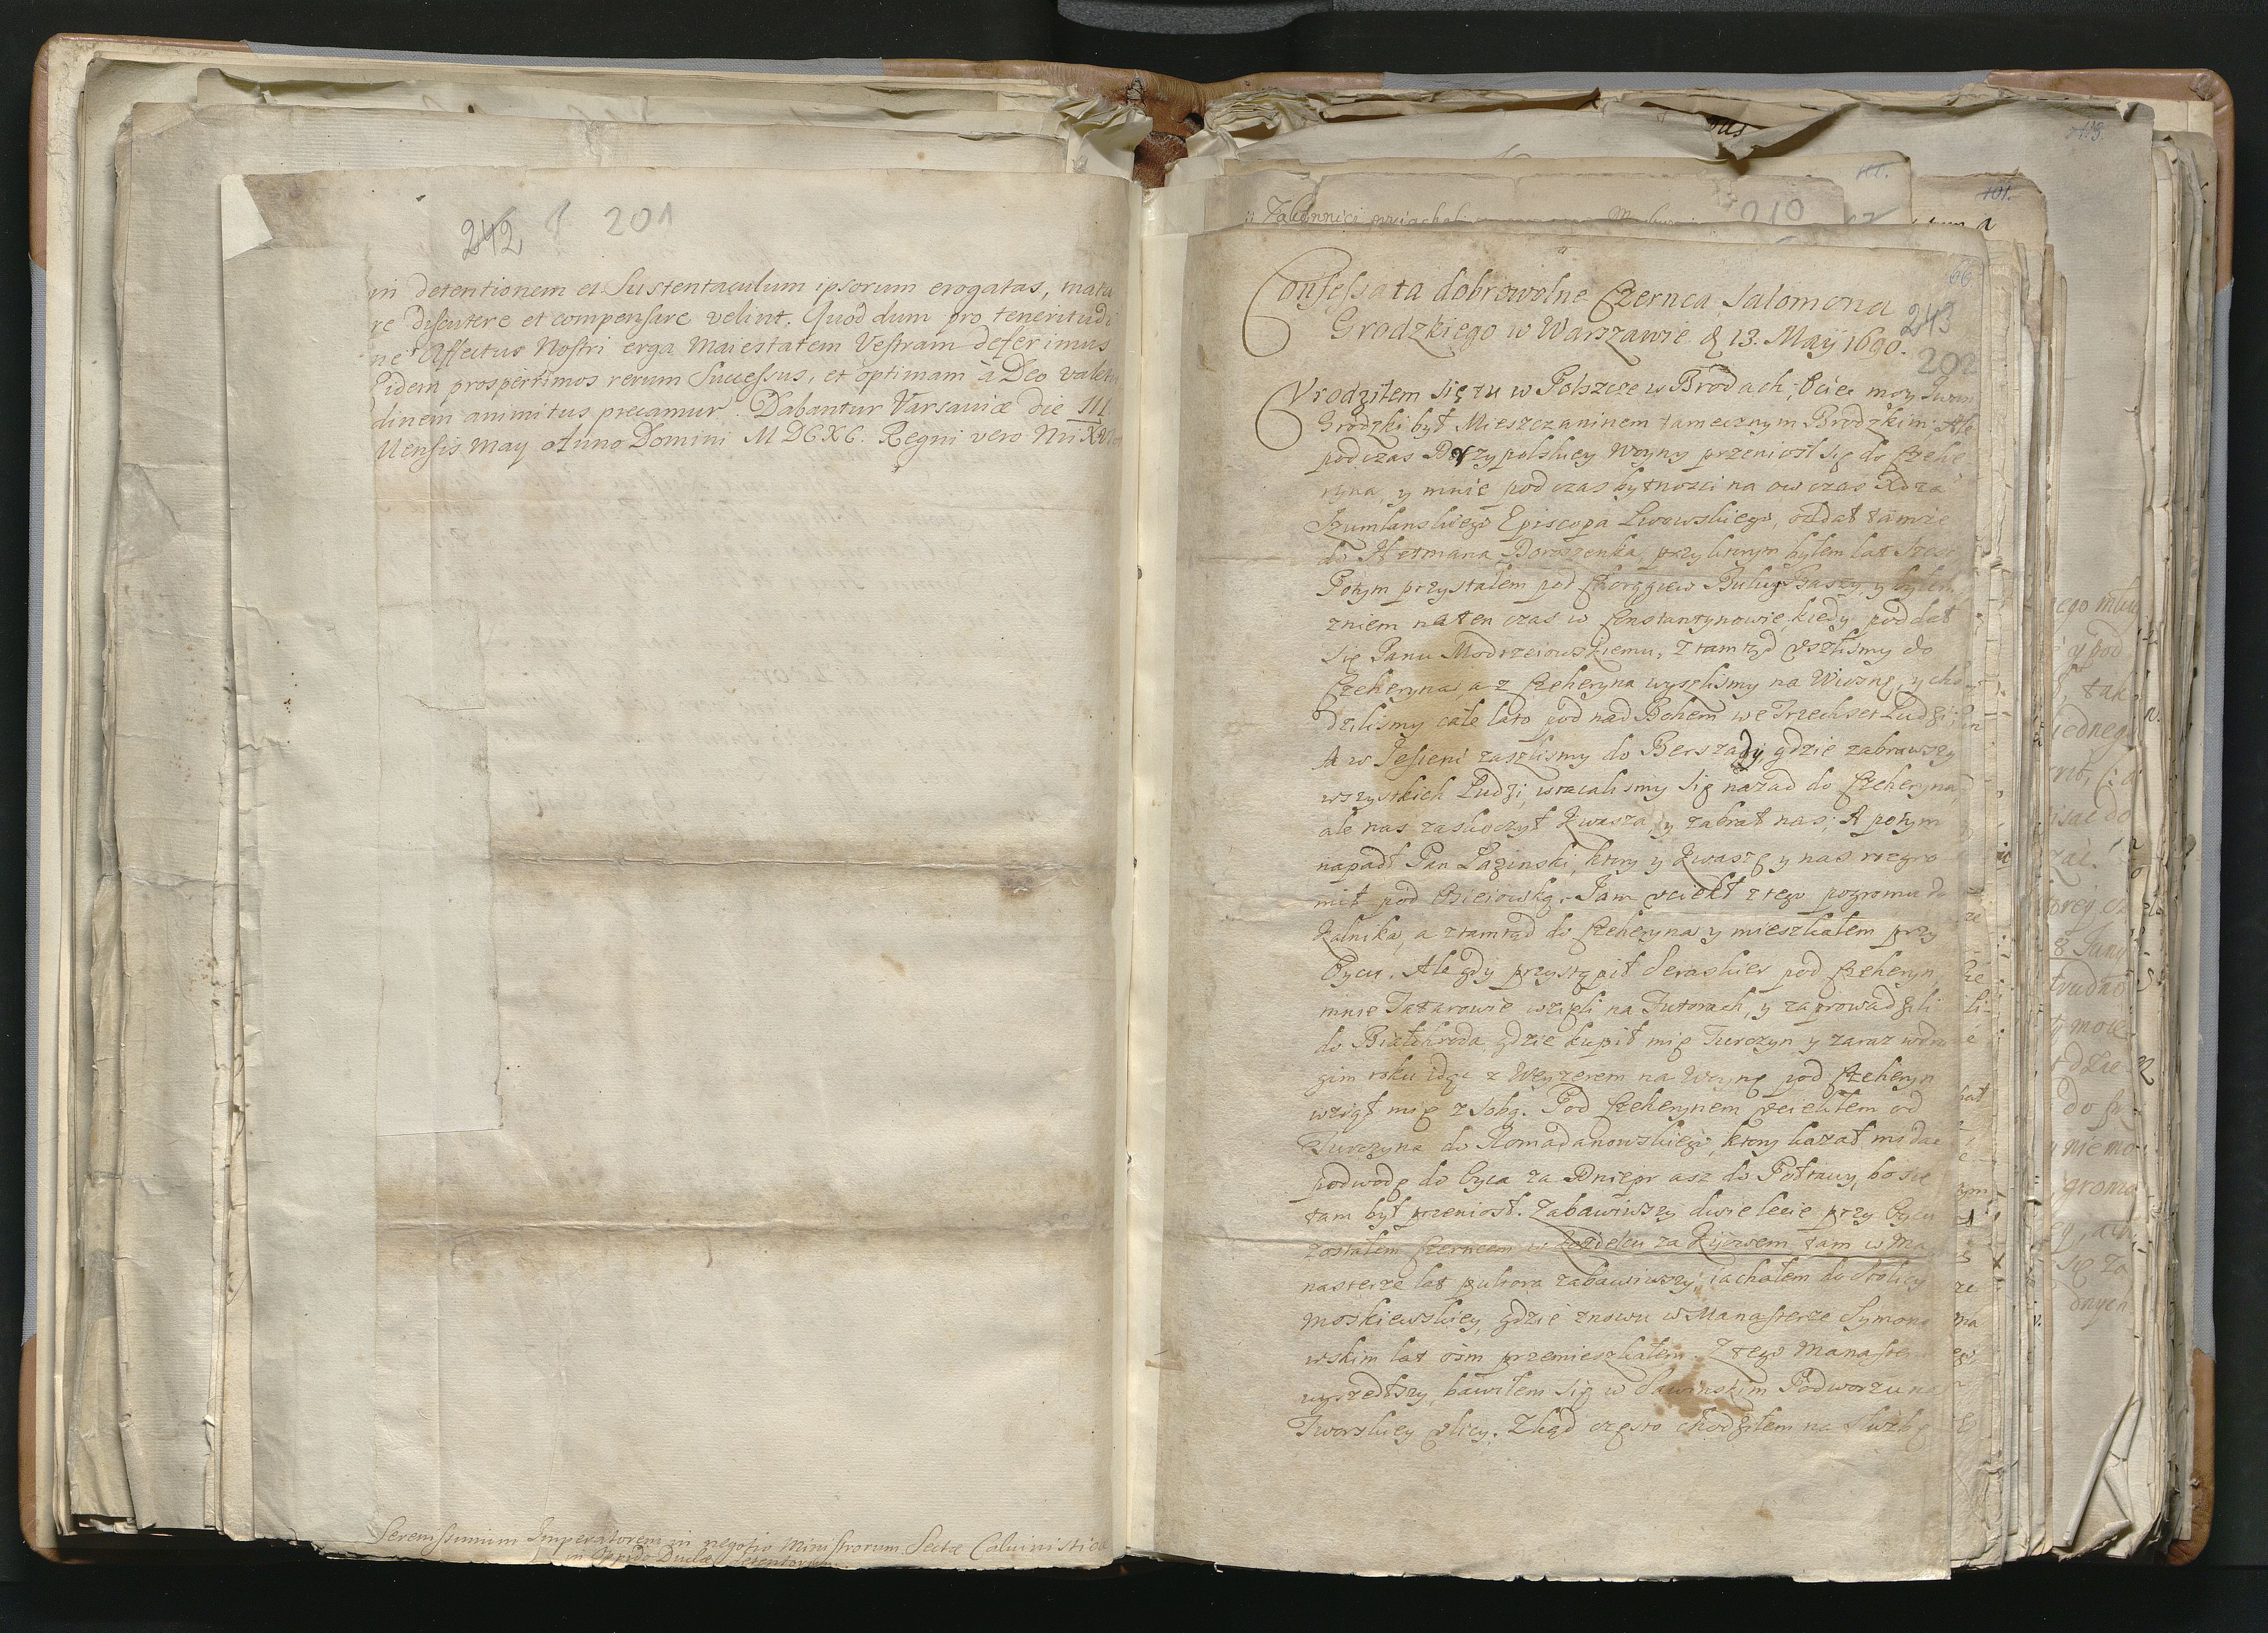 242 201
in detentionem et Sustentaculum ipsorum erogatas, matu
re discutere et compensare velint. Quod dum pro teneritudi
ne Affectus Nostri erga Maiestatem Vestram deferimus
Eidem prosperrimos rerum Successus, et optimam à Deo valetu
dinem animitus precamur. Dabantur Varsaviæ die III.
Mensis May Anno Domini MDCXC. Regni vero Nri XVI
Serenissimum Imperatorem in negotio Ministrorum Sectæ Calvinisticæ
in Oppido Duclæ detentorum.
66
Confessata dobrowolne Czernca Salomona
Grodzkiego w Warszawie d 13. Maij 1690.
243
202
Vrodziłem się tu w Polszcze w Brodach, Ociec moy Iwan
Grodzki był Mieszczaninem tamecznym Brodzkim; Ale
podczas Berzypolskiey Woyny przeniosł się do Czehe
ryna, y mnie pod czas bytnosci na ow czas Xdza
Szumlanskiego Episcopa Lwowskiego, oddał tamże
do Hetmana Doroszenka, przy ktorym byłem lat szesc
Potym przystałem pod Chorągiew Buług Baszy, y byłem
zniem na ten czas w Constantynowie, kiedy poddał
się Panu Modrzeiowskiemu, z tamtąd vszlismy do
Czeheryna, a z Czeheryna wyszlismy na Wiosnę, y cho
dzilismy całe lato pod nad Bohem we Trzechset Ludzi,
A w Jesieni zaszlismy do Berszady, gdzie zabrawszy
wszystkich Ludzi, wracalismy się nazad do Czeheryna,
ale nas zaskoczył Kwasza, y zabrał nas; A potym
napadł Pan Łazinski, ktory y Kwaszę y nas rozgro
mił pod Osieiowką. Jam vciekł z tego pogromu do
Kalnika, a ztamtąd do Czeheryna y mieszkałem przy
Oycu. Ale gdy przystąpił Seraskier pod Czeheryn,
mnie Tatarowie wzieli na Futorach, y zaprowadzili
do Białohroda gdzie kupił mię Turczyn y zaraz wdru
gim roku idąc z Wezyrem na Woynę pod Czeheryn
wziął mię z sobą. Pod Czeherynem vciekłem od
Turczyna do Romadanowskiego, ktory kazał mi dac
podwodę do Oyca za Dniepr asz do Połtawy, bo się
tam był przeniosł. Zabawiwszy dwie lecie przy Oycu
zostałem Czerncem w za Kijowem tam w Ma
nasterze lat pułtora zabawiwszy, iachałem do Stolicy
Moskiewskiey, gdzie znowu w Manasterze Symono
wskim lat osm przemieszkałem. Z tego Manaste
wyszedłszy, bawiłem się w Sawinskim Podworzu na
Tworskiey vlicy. Zkąd często chodziłem na służbę